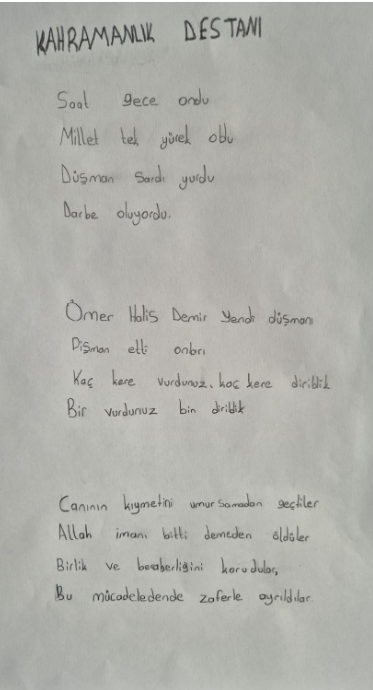 KAHRAMANLIK DESTANI
Saat gece ondu
Millet tek yürek oldu
Düşman sardı yurdu
Darbe oluyordu.
Ömer Halis Demir yendi düşmanı
Pişman etti onları
Kaç kere vurdunuz, kaç kere dirildik
Bir vurdunuz bin dirildik
Canının kıymetini umursamadan geçtiler
Allah imanı bitti demeden öldüler
Birlik ve beraberliğini korudular,
Bu mücadeledende zaferle ayrıldılar.